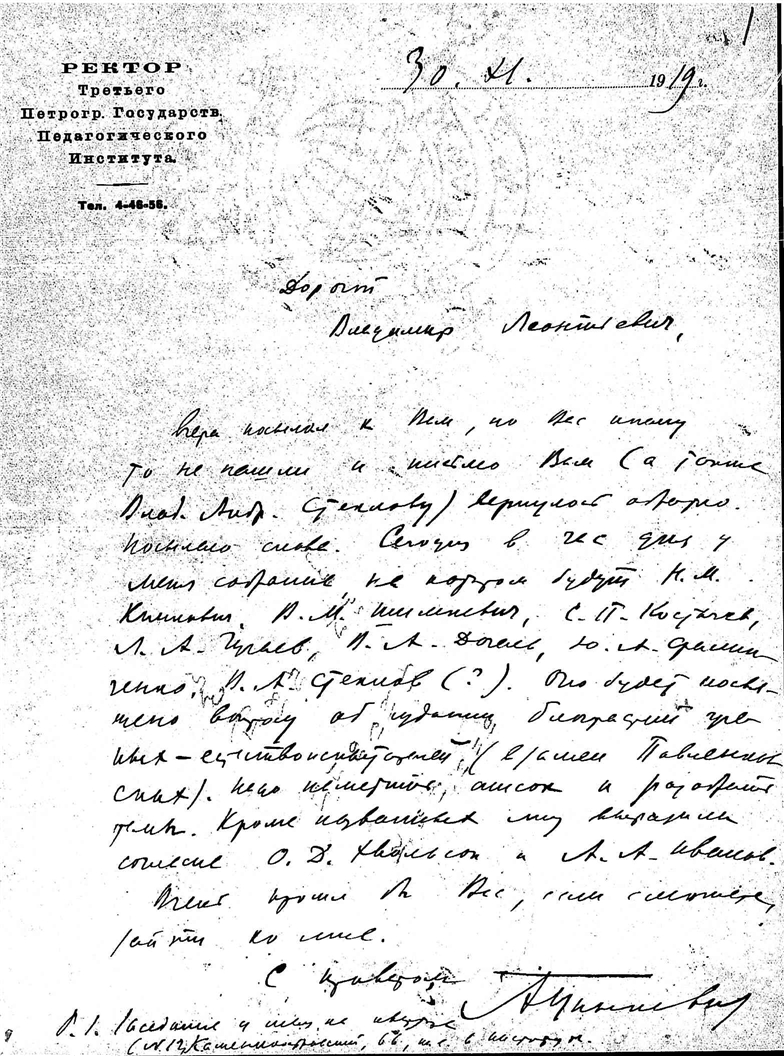 1
РЕКТОР
Третьего
Петрогр. Государств.
Педагогического
Института.
Тел. 4-46-56.
30. XI. 1919 г.
Дорогой
Владимир Леонтьевич,
Вчера посылал к Вам, но Вас почему
то не нашли и письмо Вам (а также
Влад. Андр. Стеклову) вернулось обратно.
Посылаю снова. Сегодня в час дня у
меня собрание, на котором будут Н. М.
Книпович, В. М. Шимкевич, С. П. Костычев,
Л. А. Чугаев, В. А. Догель, Ю. А. Филип-
ченко, В. А. Стеклов (?). Оно будет посвя-
щено вопросу об издании биографий уче-
ных-естествоиспытателей (взамен Павленков-
ских). Надо наметить список и разобрать
темы. Кроме названных мне выразили
согласие О. Д. Хвольсон и А. А. Иванов.
Очень просил бы Вас, если сможете,
зайти ко мне.
С приветом
P. S. Заседание у меня на квартире
Каменноостровский, 66, не в институте.